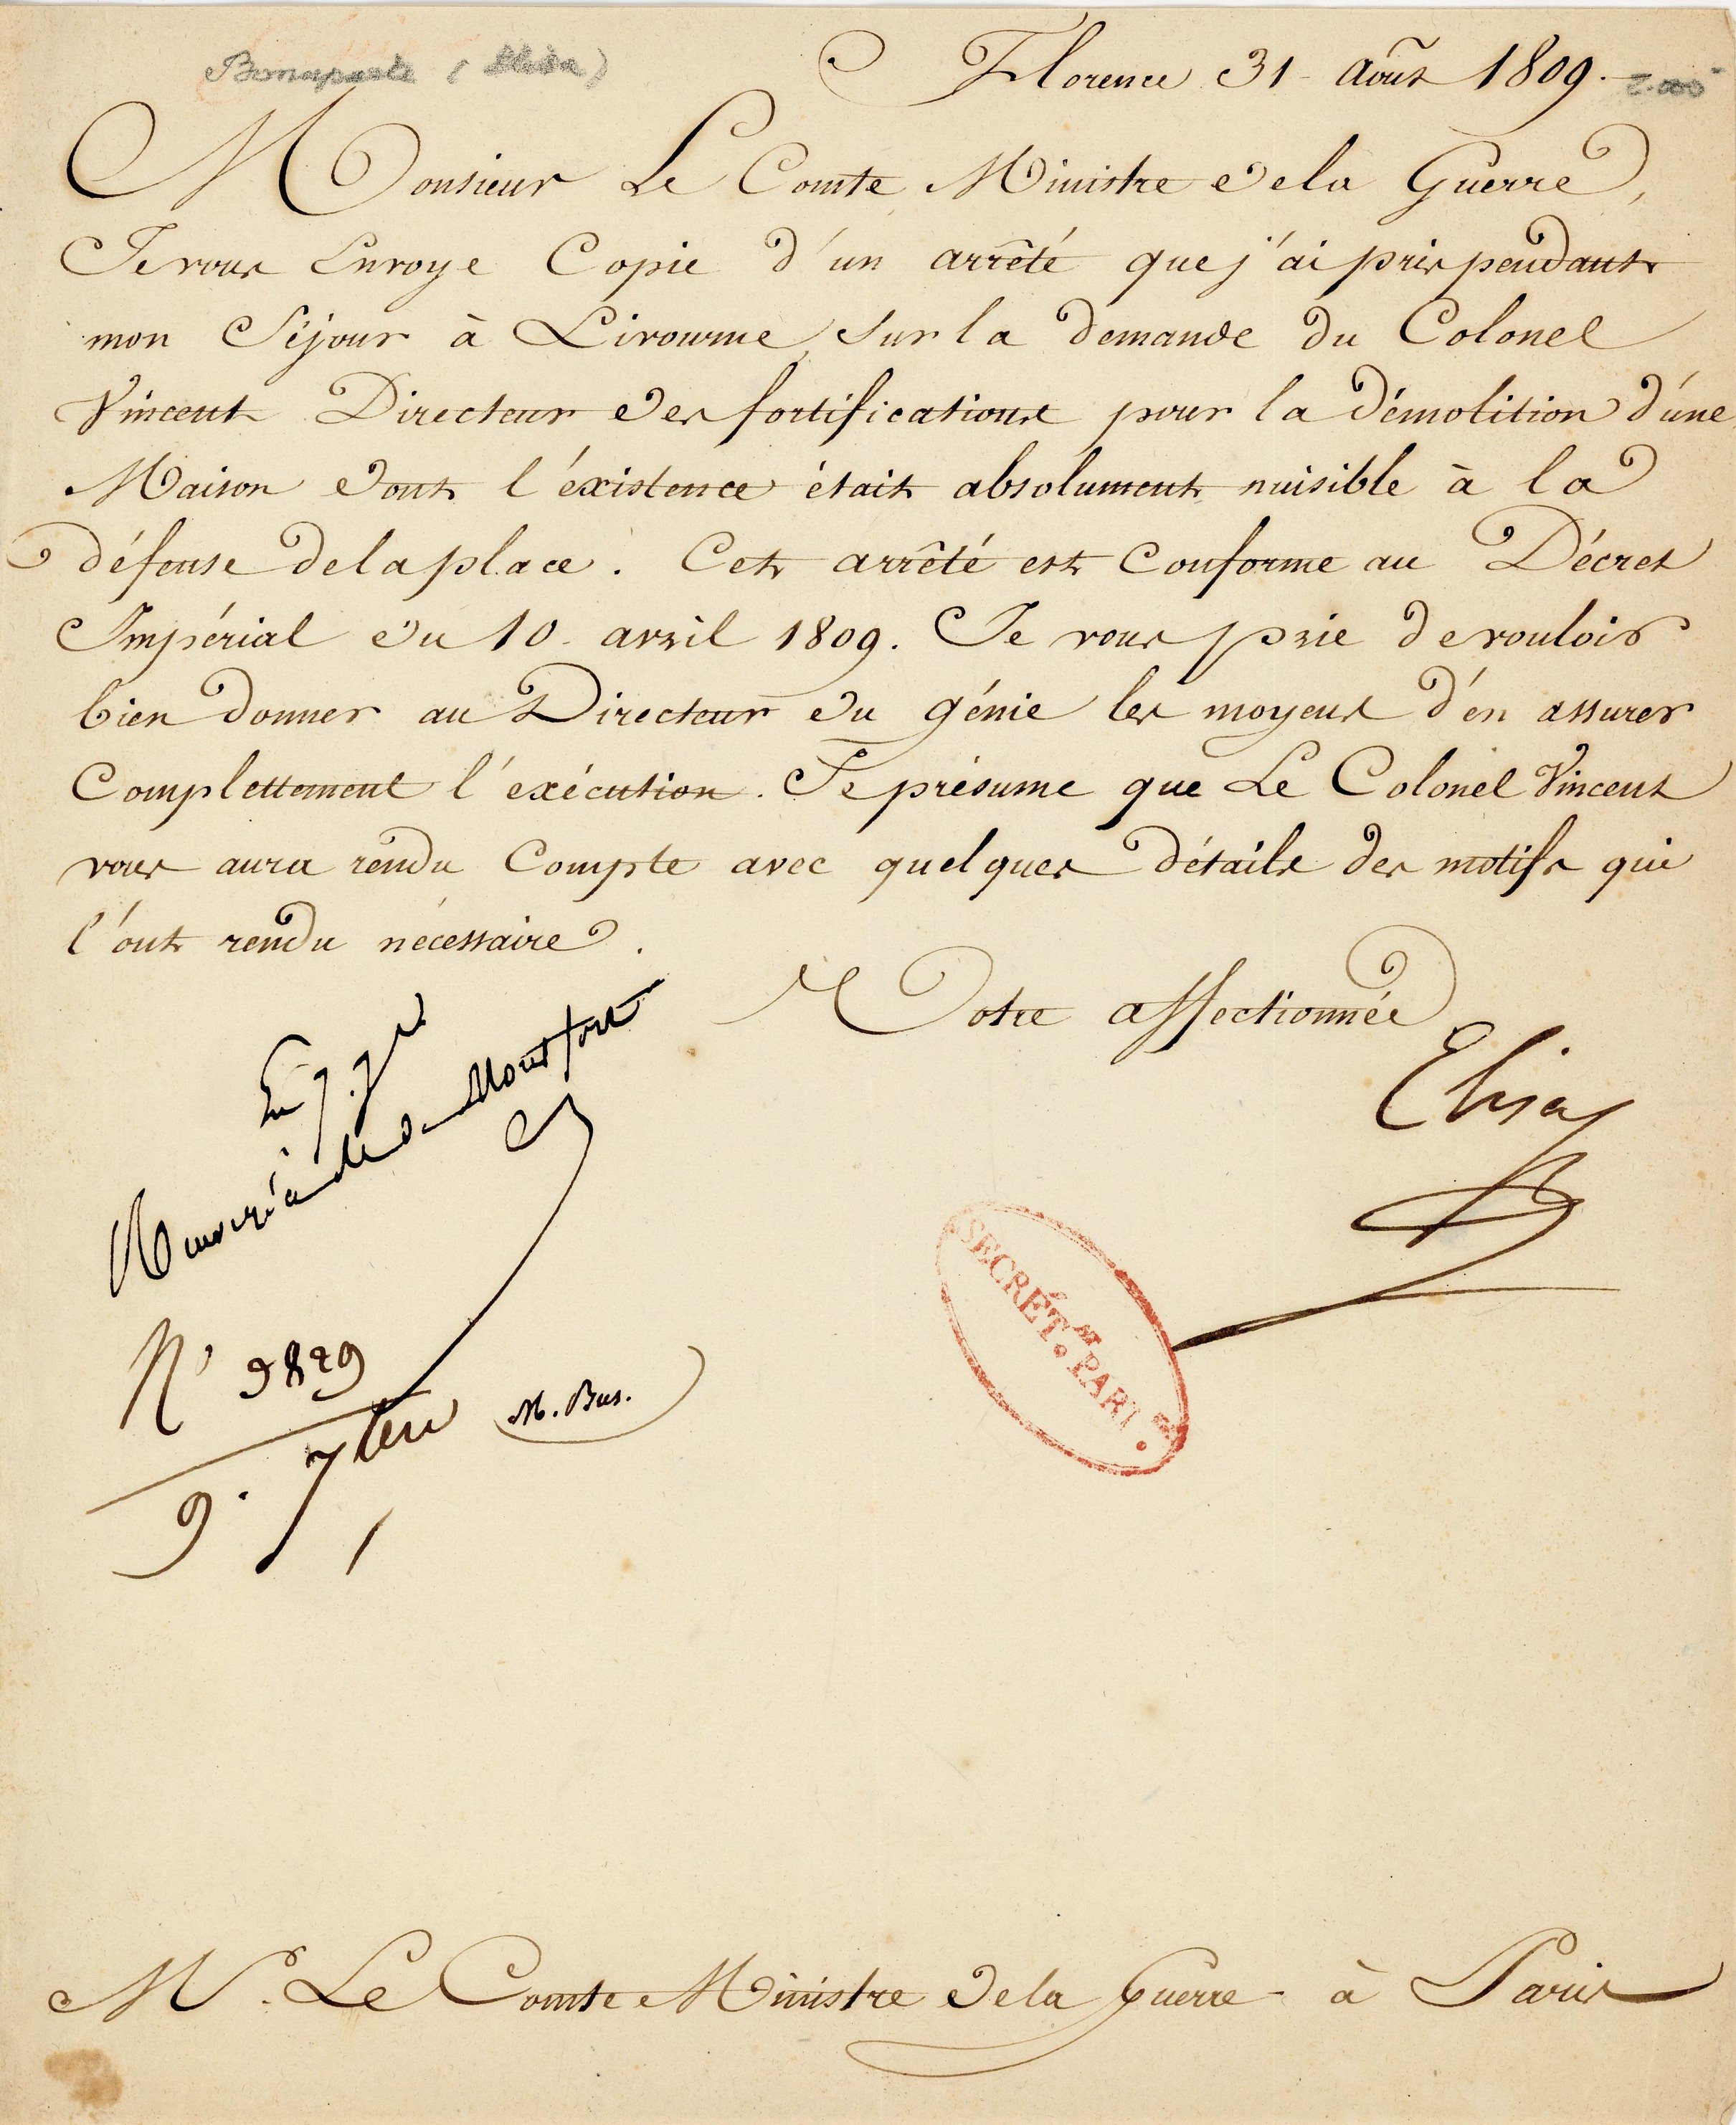 Bonaparte (Elisa)
Florence 31 Août 1809.
2.000
Monsieur Le Comte Ministre de la Guerre,
Je vous Envoye Copie d'un arrêté que j'ai pris pendant
mon Séjour à Livourne, Sur la demande du Colonel
Vincent Directeur des fortifications pour la démolition d'une
Maison dont l'éxistence était absolument nuisible à la
défense de la place. Cet arrêté est Conforme au Décret
Impérial du 10 avril 1809. Je vous prie de vouloir
bien donner au Directeur du génie les moyens d'én assurer
Complettement l'exécution. Je présume que Le Colonel Vincent
vous aura rendu Compte avec quelques détails des motifs qui
l'ont rendu nécessaire.
Votre affectionnée
Elisa
Montfort
SECRÉT. PART.
N° 9829
M. Bur.
9. 7bre
Mr. Le Comte Ministre de la Guerre à Paris